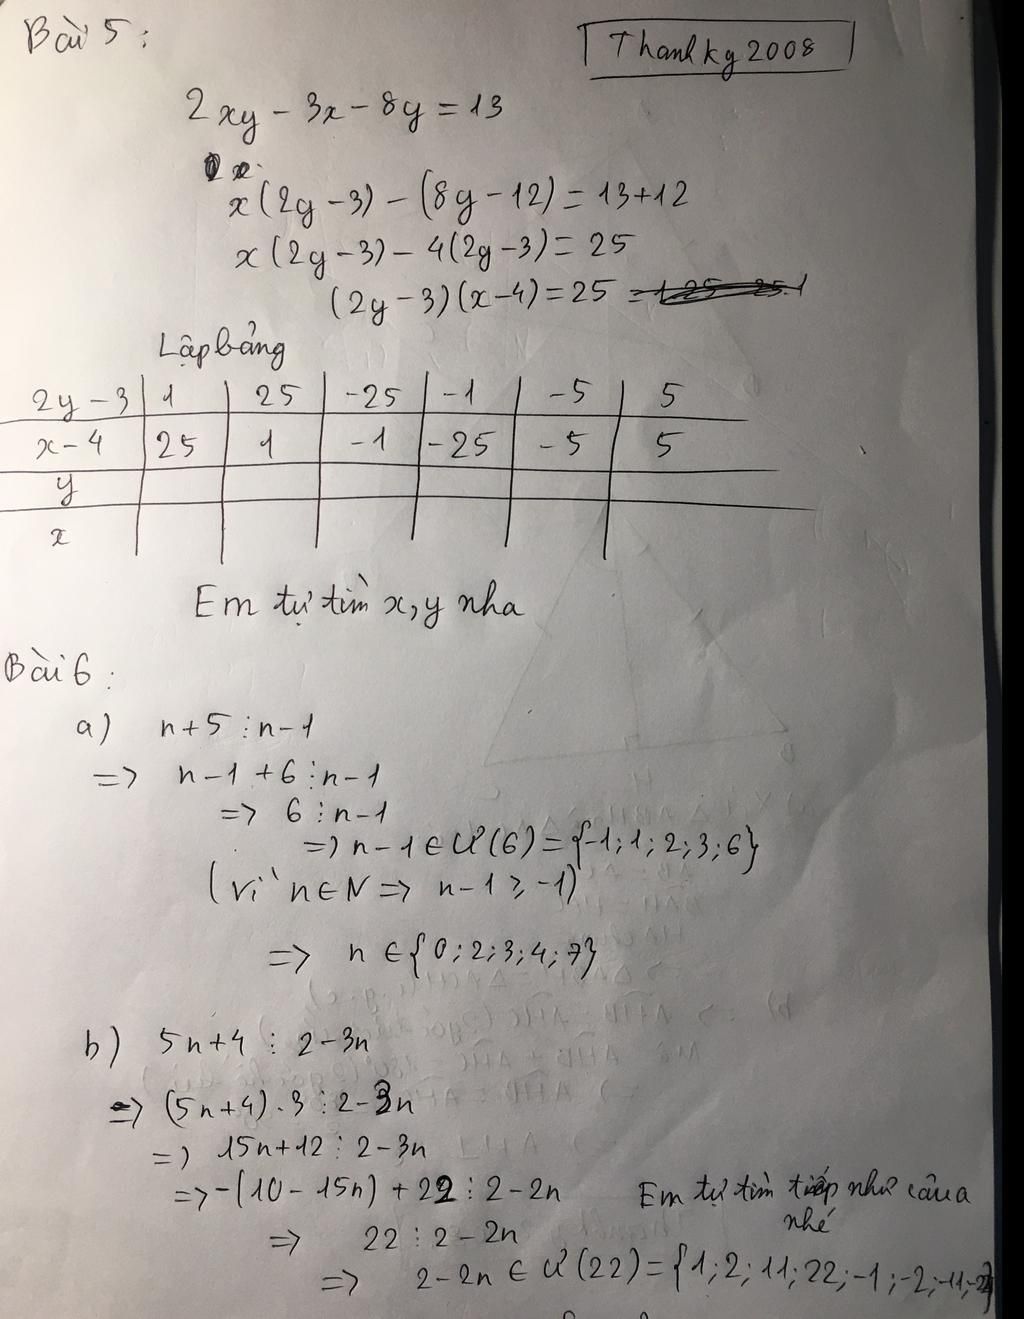 Bài 5:
Thanhkg2008
2xy - 3x - 8y = 13
x(2y - 3) - (8y - 12) = 13 + 12
x(2y - 3) - 4(2y - 3) = 25
(2y - 3)(x - 4) = 25
Lập bảng
2y - 3 | 1 | 25 | -25 | -1 | -5 | 5
x - 4 | 25 | 1 | -1 | -25 | -5 | 5
y
x
Em tự tìm x, y nha
Bài 6:
a) n + 5 ⋮ n - 1
=> n - 1 + 6 ⋮ n - 1
=> 6 ⋮ n - 1
=> n - 1 ∈ Ư(6) = {-1; 1; 2; 3; 6}
(vì n ∈ N => n - 1 ⩾ -1)
=> n ∈ {0; 2; 3; 4; 7}
b) 5n + 4 ⋮ 2 - 3n
=> (5n + 4) . 3 ⋮ 2 - 3n
=> 15n + 12 ⋮ 2 - 3n
=> -(10 - 15n) + 22 ⋮ 2 - 2n
=> 22 ⋮ 2 - 2n
=> 2 - 2n ∈ Ư(22) = {1; 2; 11; 22; -1; -2; -11; -22}
Em tự tìm tiếp như câu a
nhé